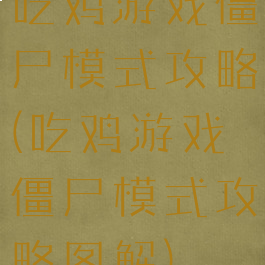 吃鸡游戏僵
尸模式攻略
(吃鸡游戏
僵尸模式攻
略图解)